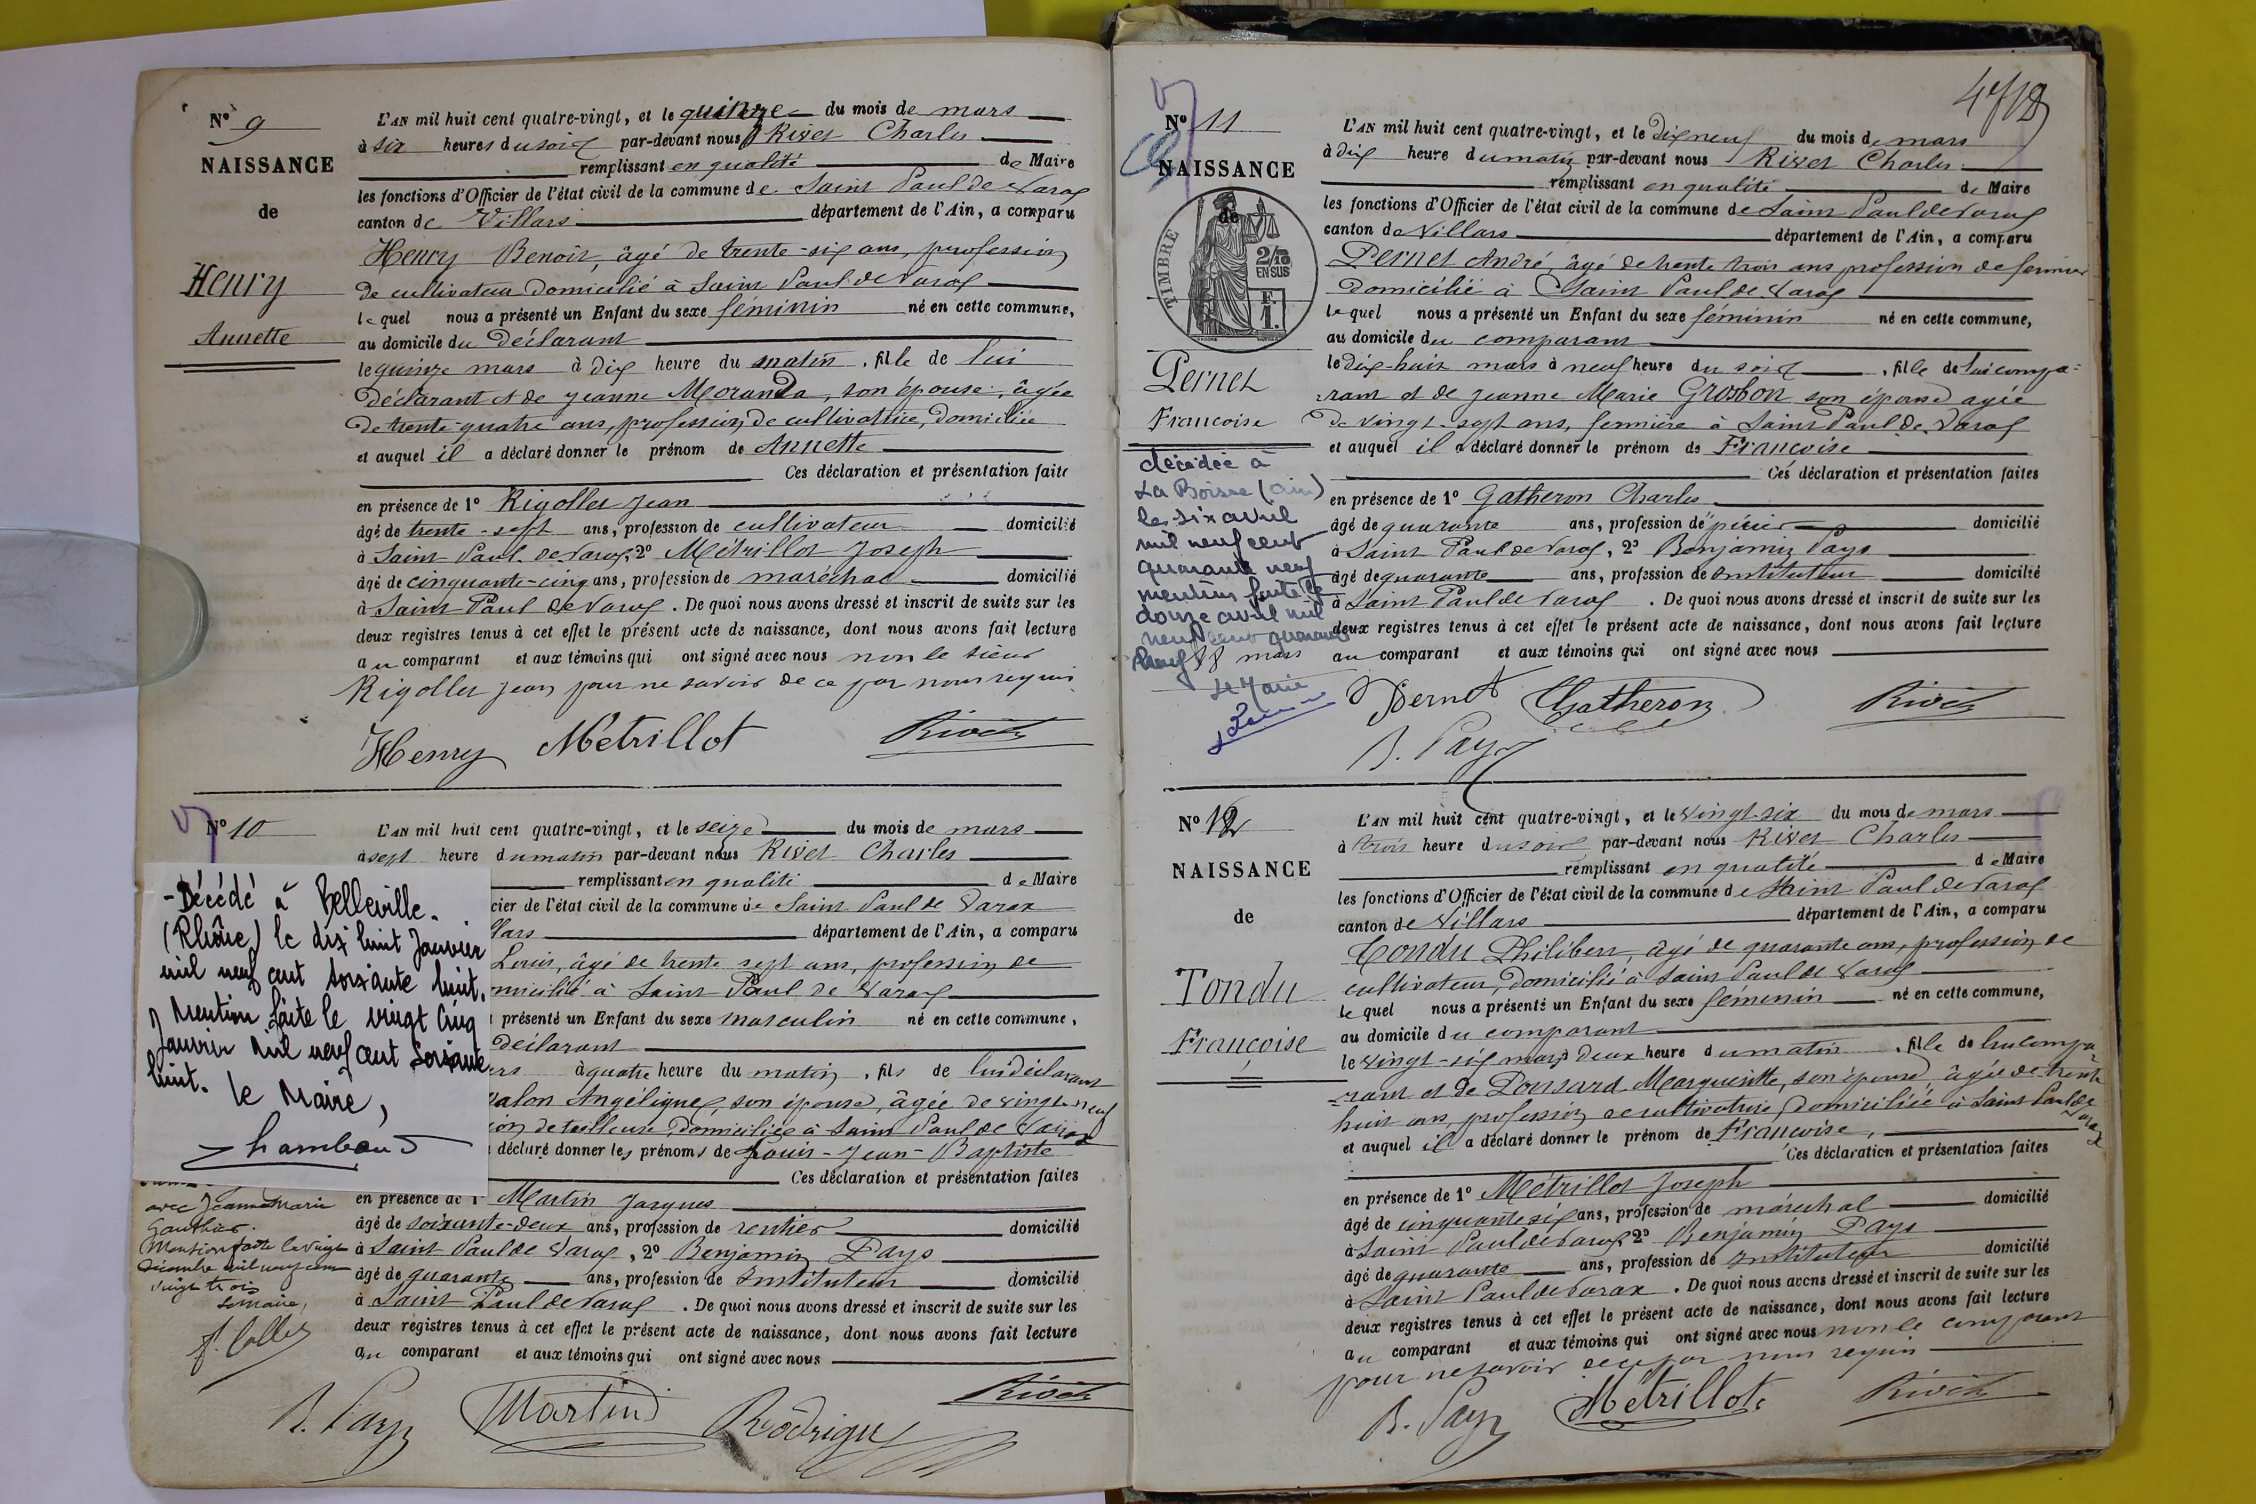 N° 9
NAISSANCE
de
Henry
Annette
L'AN mil huit cent quatre-vingt, et le quinze du mois de mars
à six heures du soir par-devant nous Rivet Charles
remplissant en qualité de Maire
les fonctions d'Officier de l'état civil de la commune de Saint Paul de Varax
canton de Villars département de l'Ain, a comparu
Henry Benoit, âgé de trente-six ans, profession
de cultivateur domicilié à Saint Paul de Varax
lequel nous a présenté un Enfant du sexe féminin né en cette commune,
au domicile du déclarant
le quinze mars à dix heure du matin, fille de lui
déclarant et de Jeanne Moranda, son épouse, âgée
de trente-quatre ans, profession de cultivatrice, domiciliée
et auquel il a déclaré donner le prénom de Annette
Ces déclaration et présentation faite
en présence de 1° Rigollet Jean
âgé de trente-sept ans, profession de cultivateur domicilié
à Saint Paul de Varax, 2° Métrillot Joseph
âgé de cinquante-cinq ans, profession de maréchal domicilié
à Saint Paul de Varax. De quoi nous avons dressé et inscrit de suite sur les
deux registres tenus à cet effet le présent acte de naissance, dont nous avons fait lecture
au comparant et aux témoins qui ont signé avec nous non le sieur
Rigollet Jean pour ne savoir de ce par nous requis
Henry Métrillot Rivet
N° 10
L'AN mil huit cent quatre-vingt, et le seize du mois de mars
à sept heure du matin par-devant nous Rivet Charles
remplissant en qualité de Maire
cier de l'état civil de la commune de Saint Paul de Varax
llars département de l'Ain, a comparu
Louis, âgé de trente sept ans, profession de
micilié à Saint Paul de Varax
présenté un Enfant du sexe masculin né en cette commune,
déclarant
rs à quatre heure du matin, fils de lui déclarant
alon Angélique, son épouse, âgée de vingt-neuf
ion de tailleuse, domiciliée à Saint Paul de Varax
déclaré donner les prénoms de Louis-Jean-Baptiste
Ces déclaration et présentation faites
en présence de 1° Martin Jacques
âgé de soixante-deux ans, profession de rentier domicilié
à Saint Paul de Varax, 2° Benjamin Pays
âgé de quarante ans, profession de Instituteur domicilié
à Saint Paul de Varax. De quoi nous avons dressé et inscrit de suite sur les
deux registres tenus à cet effet le présent acte de naissance, dont nous avons fait lecture
au comparant et aux témoins qui ont signé avec nous
B. Pays Martin Rodrigue Rivet
-Décédé à Belleville.
(Rhône) le dix huit Janvier
mil neuf cent soixante huit.
Mention faite le vingt cinq
Janvier mil neuf cent soixante
huit. Le Maire,
Chambaud
avec Jeanne Marie
Gauthier.
Mention faite le vingt
décembre mil neuf cent
vingt trois
le maire,
47/18
N° 11
NAISSANCE
de
TIMBRE
2/10
EN SUS
F.
1.
Pernet
Françoise
décédée à
La Boisse (Ain)
le six avril
mil neuf cent
quarante neuf
mention faite le
douze avril mil
neuf cent quarante
neuf
L'AN mil huit cent quatre-vingt, et le dix neuf du mois de mars
à dix heure du matin par-devant nous Rivet Charles
remplissant en qualité de Maire
les fonctions d'Officier de l'état civil de la commune de Saint Paul de Varax
canton de Villars département de l'Ain, a comparu
Pernet André, âgé de trente trois ans profession de fermier
domicilié à Saint Paul de Varax
lequel nous a présenté un Enfant du sexe féminin né en cette commune,
au domicile du comparant
le dix-huit mars à neuf heure du soir, fille de lui compa-
rant et de Jeanne Marie Grosbon son épouse agée
de vingt-sept ans, fermière à Saint Paul de Varax
et auquel il a déclaré donner le prénom de Françoise
Ces déclaration et présentation faites
en présence de 1° Gatheron Charles
âgé de quarante ans, profession de épicier domicilié
à Saint Paul de Varax, 2° Benjamin Pays
âgé de quarante ans, profession de Instituteur domicilié
à Saint Paul de Varax. De quoi nous avons dressé et inscrit de suite sur les
deux registres tenus à cet effet le présent acte de naissance, dont nous avons fait lecture
au comparant et aux témoins qui ont signé avec nous
Pernet Gatheron Rivet
B. Pays
N° 12
NAISSANCE
de
Tondu
Françoise
L'AN mil huit cent quatre-vingt, et le vingt-six du mois de mars
à trois heure du soir par-devant nous Rivet Charles
remplissant en qualité de Maire
les fonctions d'Officier de l'état civil de la commune de Saint Paul de Varax
canton de Villars département de l'Ain, a comparu
Tondu Philibert, âgé de quarante ans, profession de
cultivateur, domicilié à Saint Paul de Varax
lequel nous a présenté un Enfant du sexe féminin né en cette commune,
au domicile du comparant
le vingt-six mars à deux heure du matin, fille de lui compa-
rant et de Ponsard Marguerite, son épouse, âgée de trente
huit ans, profession de cultivatrice, domiciliée à Saint Paul de Varax
et auquel il a déclaré donner le prénom de Françoise,
Ces déclaration et présentation faites
en présence de 1° Métrillot Joseph
âgé de cinquante six ans, profession de maréchal domicilié
à Saint Paul de Varax, 2° Benjamin Pays
âgé de quarante ans, profession de Instituteur domicilié
à Saint Paul de Varax. De quoi nous avons dressé et inscrit de suite sur les
deux registres tenus à cet effet le présent acte de naissance, dont nous avons fait lecture
au comparant et aux témoins qui ont signé avec nous non le comparant
pour ne savoir de ce par nous requis
B. Pays Métrillot Rivet